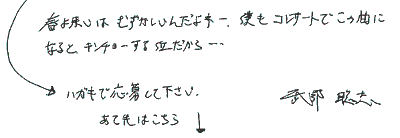 春よ来いは むずかしいんだよネー。僕も コンサートでこの曲に
なると キンチョーする位だから…
ハガキで応募して下さい。
武部 聡志
あて先はこちら